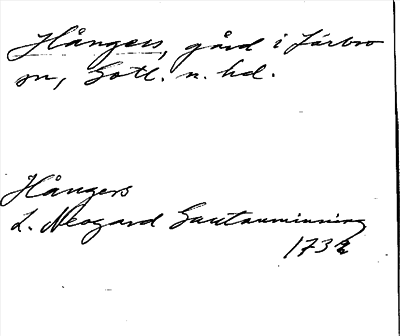 Hångers, gård i Lärbro
sn, Gotl. n. hd.
Hångers
L. Neogard Gautauminning
1732